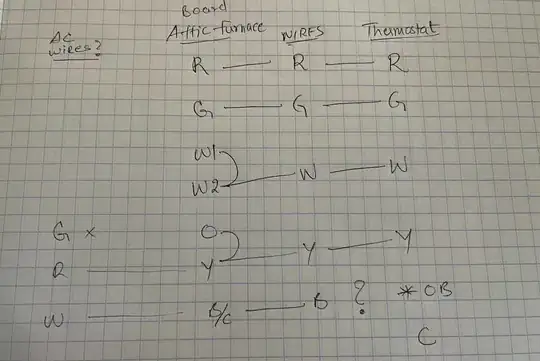 Board
AC Attic-furnace WIRES Thermostat
wires?
R R R
G G G
W1
W2 W W
G x O
R Y Y Y
W B/C B ? * OB
C